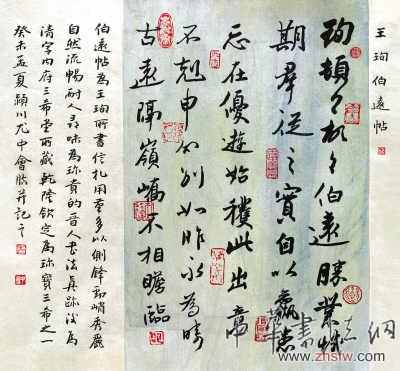 王珣伯遠帖
珣頓首頓首伯遠勝業情
期羣從之寶自以羸患
志在優遊始獲此出意
不剋申分別如昨永為疇
古遠隔嶺嶠不相瞻臨
伯遠帖為王珣所書信札用筆多以側鋒勁峭秀麗
自然流暢耐人尋味為珍貴的晉人書法真跡後為
清宮內府三希堂所藏乾隆欽定為珍寶三希之一
癸未孟夏潁川尤中會臨并記之
華書法網
www.zhsfw.com